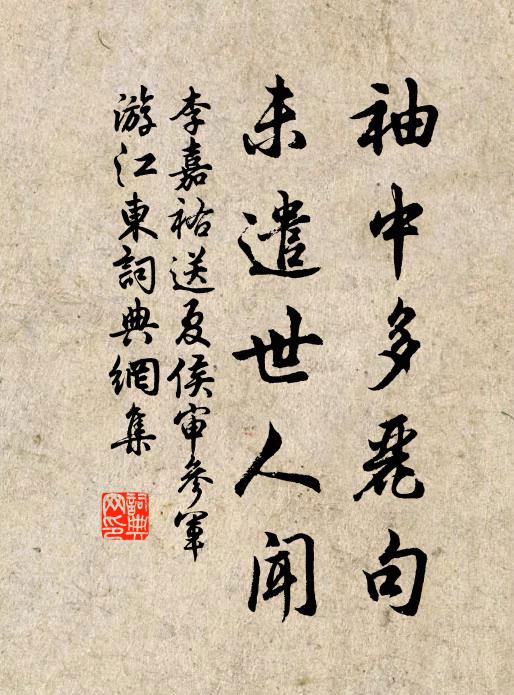 袖中多麗句
未遣世人聞
李嘉祐送夏侯审參軍
游江東詞典網集
詞典网印